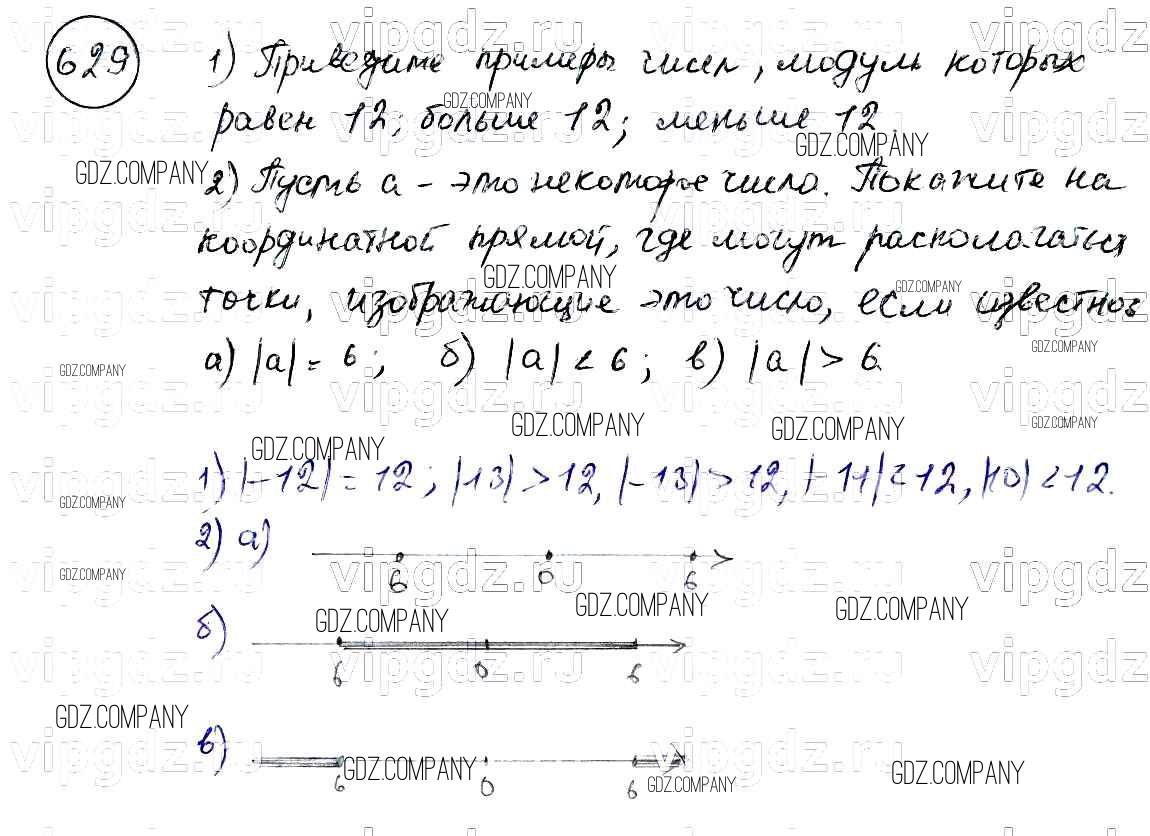 629
1) Приведите примеры чисел, модуль которых
равен 12; больше 12; меньше 12
2) Пусть a - это некоторое число. Покажите на
координатной прямой, где могут располагаться
точки, изображающие это число, если известно
а) |a| = 6; б) |a| < 6; в) |a| > 6
1) |-12| = 12; |13| > 12, |-13| > 12, |-11| < 12, |10| < 12.
2) а)
6 0 6
б)
6 0 6
в)
6 0 6
vipgdz.ru
GDZ.COMPANY